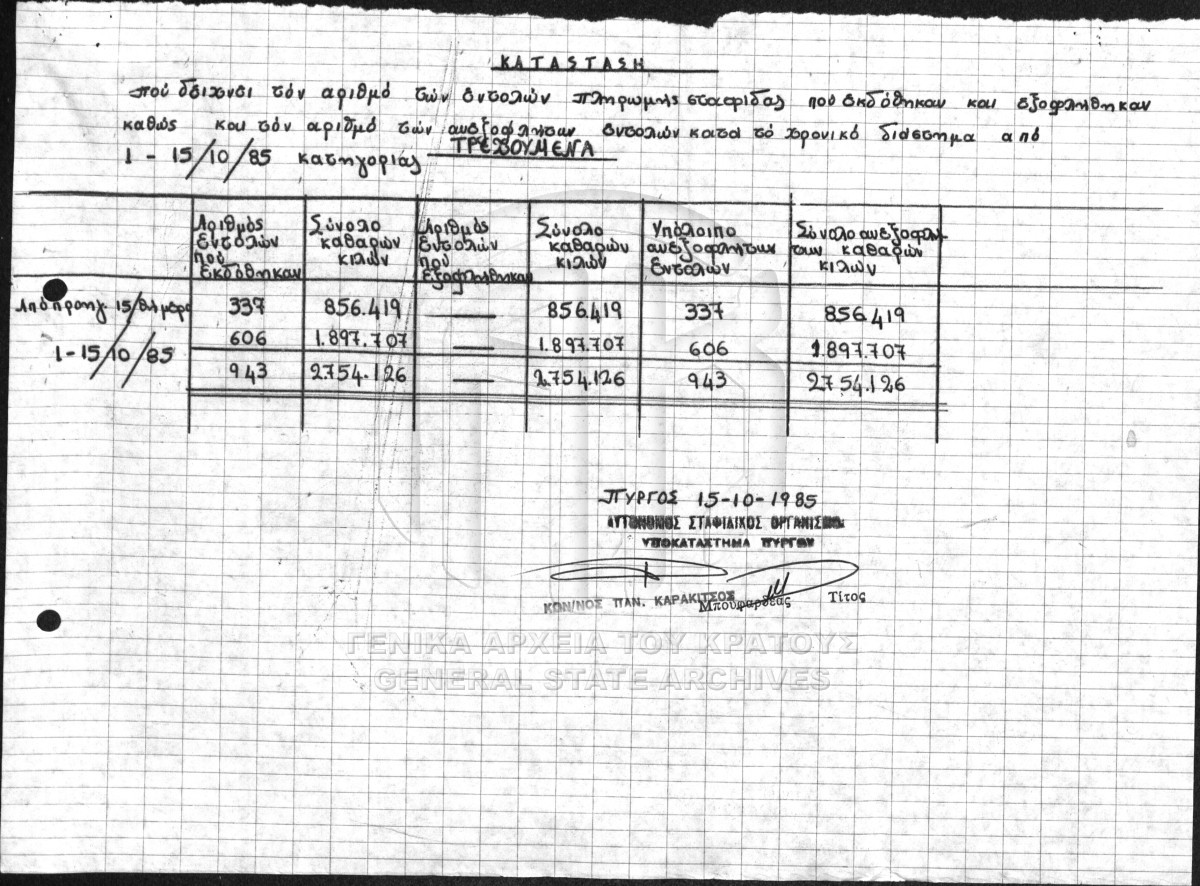 ΚΑΤΑΣΤΑΣΗ
πού δείχνει τόν αριθμό τών εντολών πληρωμής σταφίδας πού εκδόθηκαν και εξοφλήθηκαν
καθώς και τόν αριθμό τών ανεξοφλήτων εντολών κατά τό χρονικό διάστημα από
1 - 15/10/85 κατηγορίας ΤΡΕΧΟΥΜΕΝΑ
Αριθμός εντολών πού εκδόθηκαν
Σύνολο καθαρών κιλών
Αριθμός εντολών πού εξοφλήθηκαν
Σύνολο καθαρών κιλών
Υπόλοιπο ανεξοφλήτων εντολών
Σύνολο ανεξοφλή των καθαρών κιλών
Από προηγ. 15/θήμερο 337 856.419 — 856.419 337 856.419
1-15/10/85 606 1.897.707 — 1.897.707 606 1.897.707
943 2754.126 — 2.754.126 943 2754.126
ΠΥΡΓΟΣ 15-10-1985
ΑΥΤΟΝΟΜΟΣ ΣΤΑΦΙΔΙΚΟΣ ΟΡΓΑΝΙΣΜΟΣ
ΥΠΟΚΑΤΑΣΤΗΜΑ ΠΥΡΓΟΥ
ΚΩΝ/ΝΟΣ ΠΑΝ. ΚΑΡΑΚΙΤΣΟΣ Τίτος
ΓΕΝΙΚΑ ΑΡΧΕΙΑ ΤΟΥ ΚΡΑΤΟΥΣ
GENERAL STATE ARCHIVES